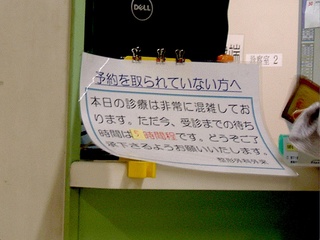 DELL
診察室 2
予約を取られていない方へ
本日の診療は非常に混雑してお
ります。ただ今、受診までの待ち
時間は 時間程です。どうぞご了
承下さるようお願いいたします。
整形外科外来